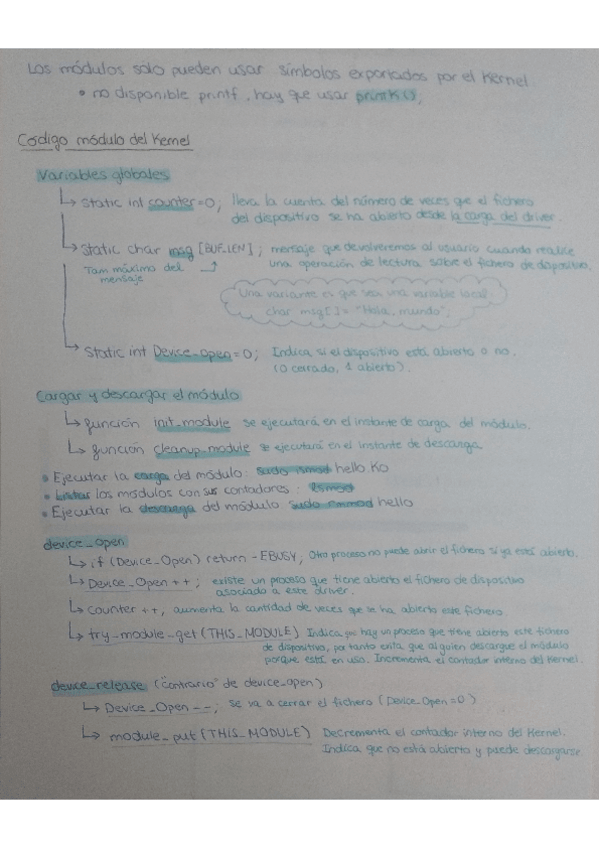 Los módulos solo pueden usar símbolos exportados por el Kernel
• no disponible printf, hay que usar printK();
Código módulo del Kernel
Variables globales
↳ static int counter=0; lleva la cuenta del número de veces que el fichero
del dispositivo se ha abierto desde la carga del driver.
↳ static char msg [BUF_LEN]; mensaje que devolveremos al usuario cuando realice
Tam máximo del
mensaje
una operación de lectura sobre el fichero de dispositivo.
Una variante es que sea una variable local.
char msg[] = "Hola mundo";
↳ static int Device_open=0; Indica si el dispositivo está abierto o no.
(0 cerrado, 1 abierto).
Cargar y descargar el módulo
↳ función init_module se ejecutará en el instante de carga del módulo.
↳ función cleanup_module se ejecutará en el instante de descarga
• Ejecutar la carga del módulo: sudo ismod hello Ko
• Listar los módulos con sus contadores: lsmod
• Ejecutar la descarga del módulo sudo rmmod hello
device_open
↳ if (Device_Open) return -EBUSY; Otro proceso no puede abrir el fichero si ya está abierto.
↳ Device_Open ++; existe un proceso que tiene abierto el fichero de dispositivo
asociado a este driver.
↳ counter ++, aumenta la cantidad de veces que se ha abierto este fichero.
↳ try_module_get(THIS_MODULE) Indica que hay un proceso que tiene abierto este fichero
de dispositivo, por tanto evita que alguien descargue el módulo
porque está en uso. Incrementa el contador interno del Kernel.
device_release ("contrario" de device_open)
↳ Device_Open --; se va a cerrar el fichero (Device_Open=0)
↳ module_put(THIS_MODULE) Decrementa el contador interno del Kernel.
Indica que no está abierto y puede descargarse